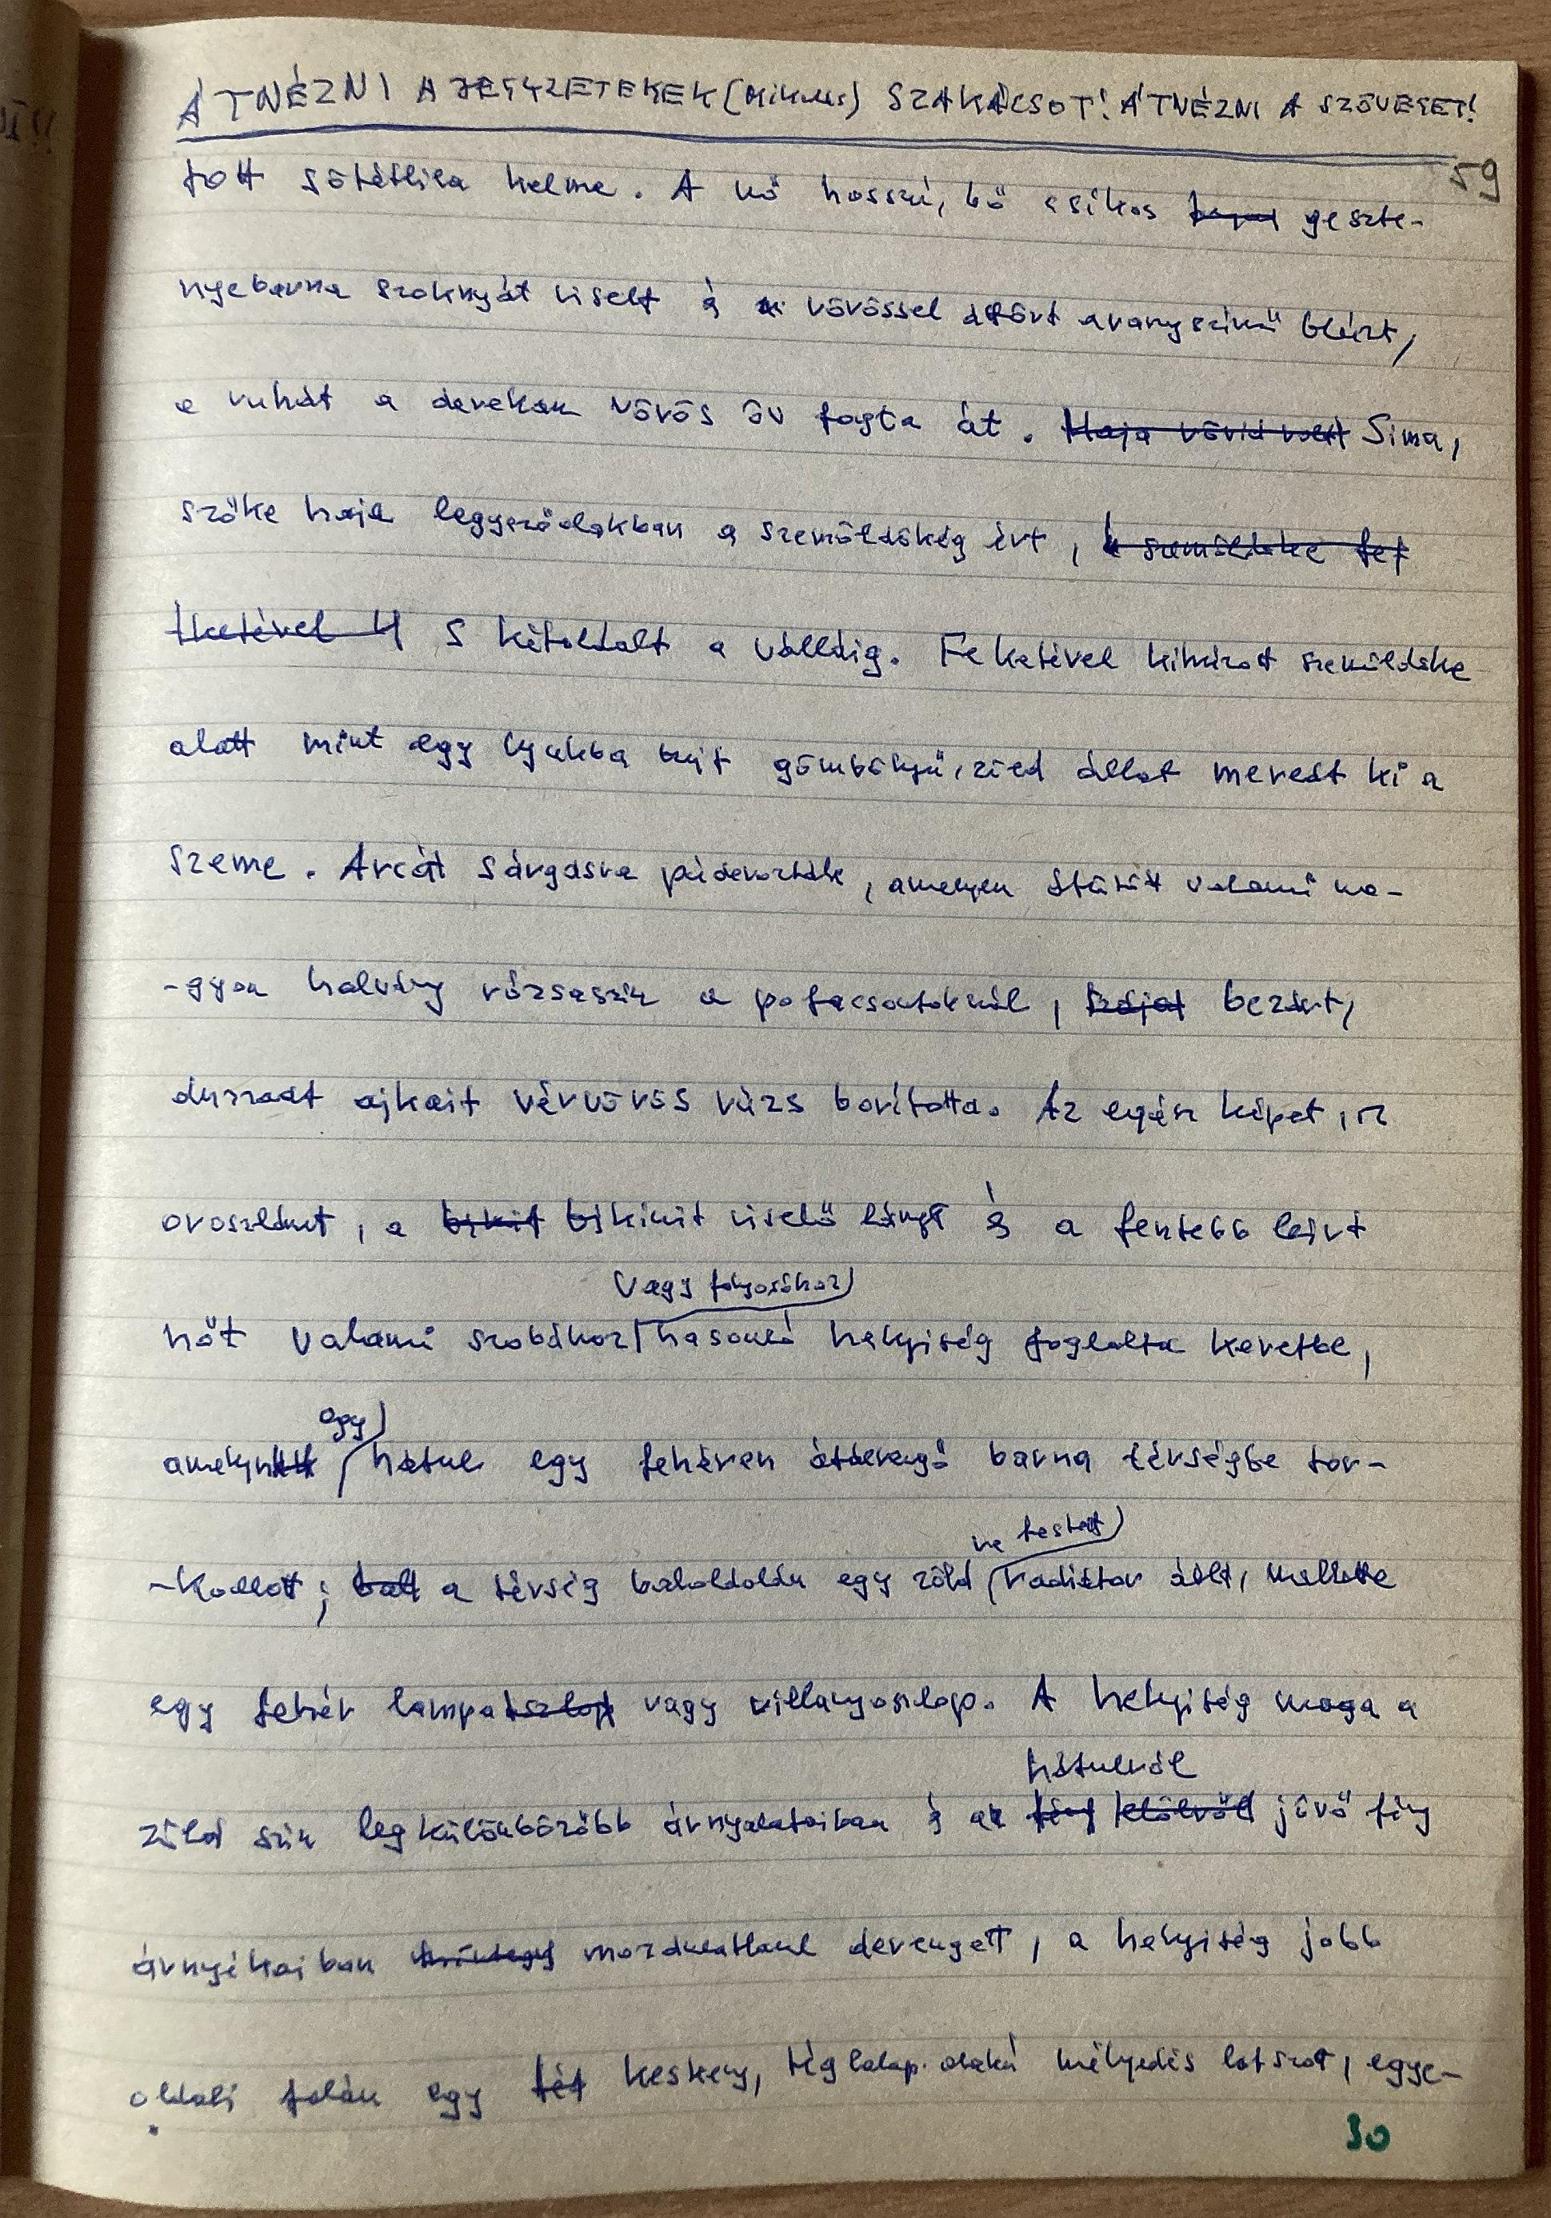 ÁTNÉZNI A JEGYZETEKEK (Miklós) SZAKÁCSOT! ÁTNÉZNI A SZÖVEGET!
59
tott sötétlila kelme. A nő hosszú, bő csíkos barna geszte-
nyebarna szoknyát viselt és vörössel áttört aranyszínű blúzt,
a ruhát a derekán vörös öv fogta át. Haja rövid volt Sima,
szőke haja legyeződakban a szemöldökéig ért, a szemöldöke fet
ketével H S kétoldalt a válláig. Feketével kihúzott szemöldöke
alatt mint egy lyukba bújt gömbölyű, riad állat meredt ki a
szeme. Arcát sárgásra púderozták, amelyen átütött valami na-
-gyon halvány rózsaszín a pofacsontoknál, száját bezárt,
duzzadt ajkait vérvörös rúzs borította. Az egész képet, az
oroszlánt, a bikit bikinit viselő lányt és a fentebb leírt
vagy folyosóhoz
nőt valami szobához hasonló helyiség foglalta keretbe,
egy
amelynek hátul egy fehéren átderengő barna térségbe tor-
-kollott; balt a térség baloldalán egy zöld radiátor állt, mellette
re festett
egy fehér lámpaoszlop vagy villanyoszlop. A helyiség maga a
hátulról
zöld szín legkülönbözőbb árnyalataiban és a fény elölről jövő fény
árnyékaiban mozdulatlanul derengett, a helyiség jobb
oldali falán egy tét keskeny, téglalap alakú mélyedés látszott, egye-
30